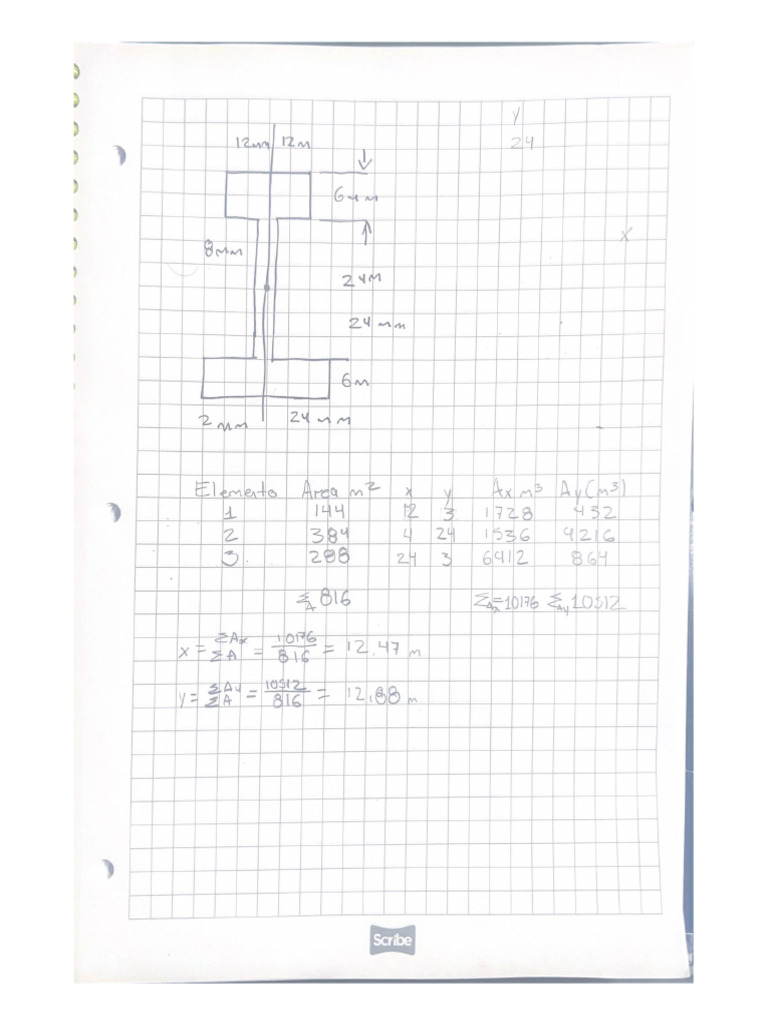 y
24
12m 12m
6mm
8mm
x
24m
24mm
6m
2mm 24mm
Elemento Area m² x y Ax m³ Ay(m³)
1 144 12 3 1728 432
2 384 4 24 1536 4216
3. 288 24 3 6912 864
ΣA 816 ΣAx=10176 ΣAy 10512
x = ΣAx/ΣA = 10176/816 = 12.47 m
y = ΣAy/ΣA = 10512/816 = 12.88 m
Scribe